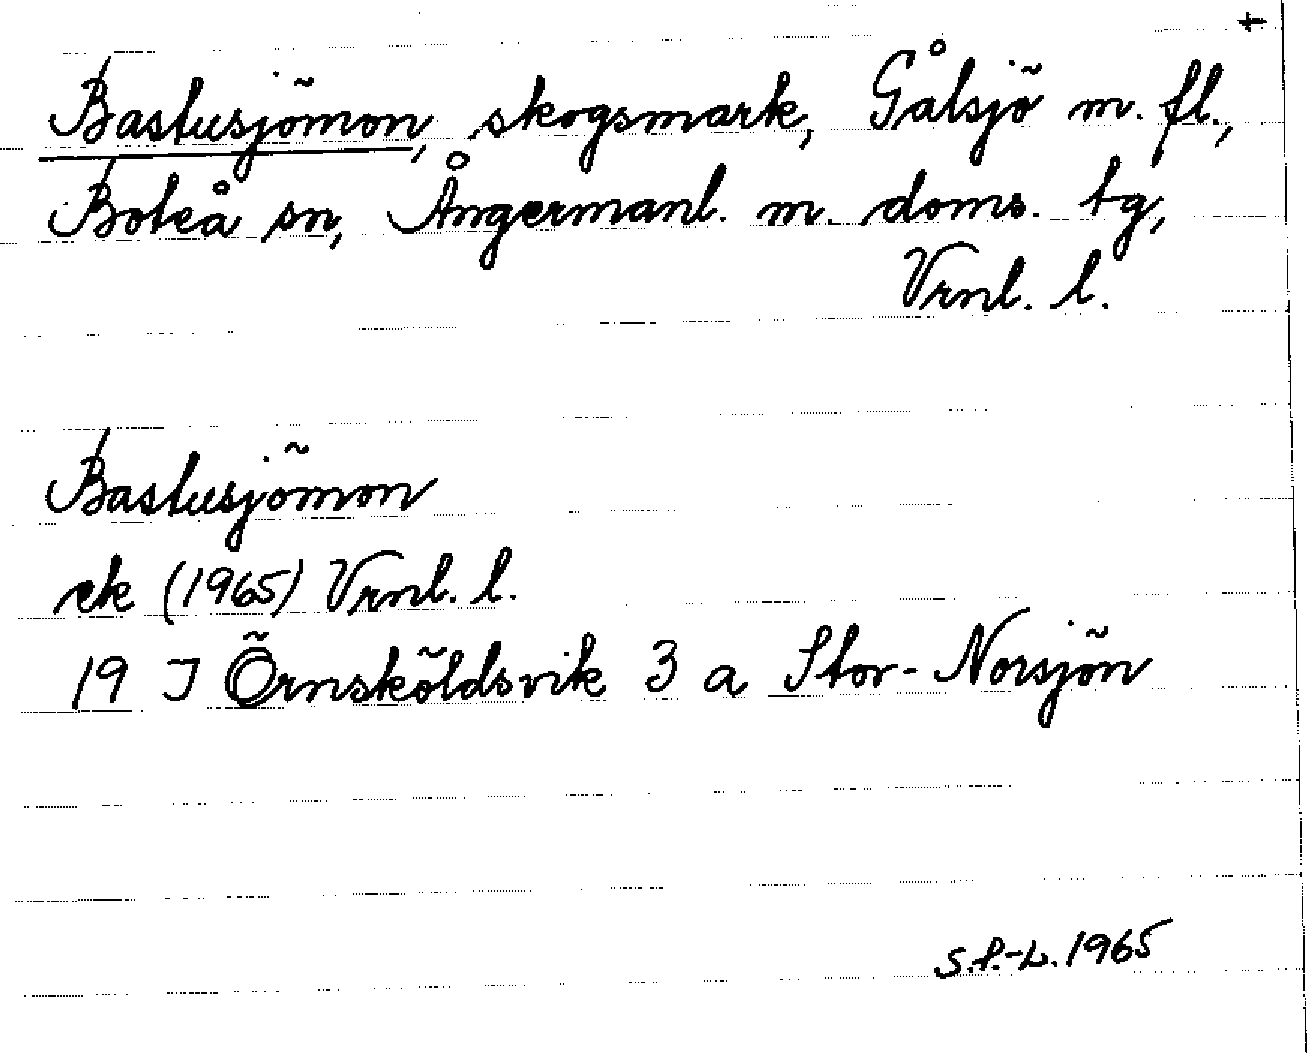 +
Bastusjömon, skogsmark, Gålsjö m. fl.,
Boteå sn, Ångermanl. m. doms. tg,
Vrnl. l.
Bastusjömon
ek (1965) Vrnl. l.
19 I Örnsköldsvik 3 a Stor-Norsjön
S.P.-L. 1965